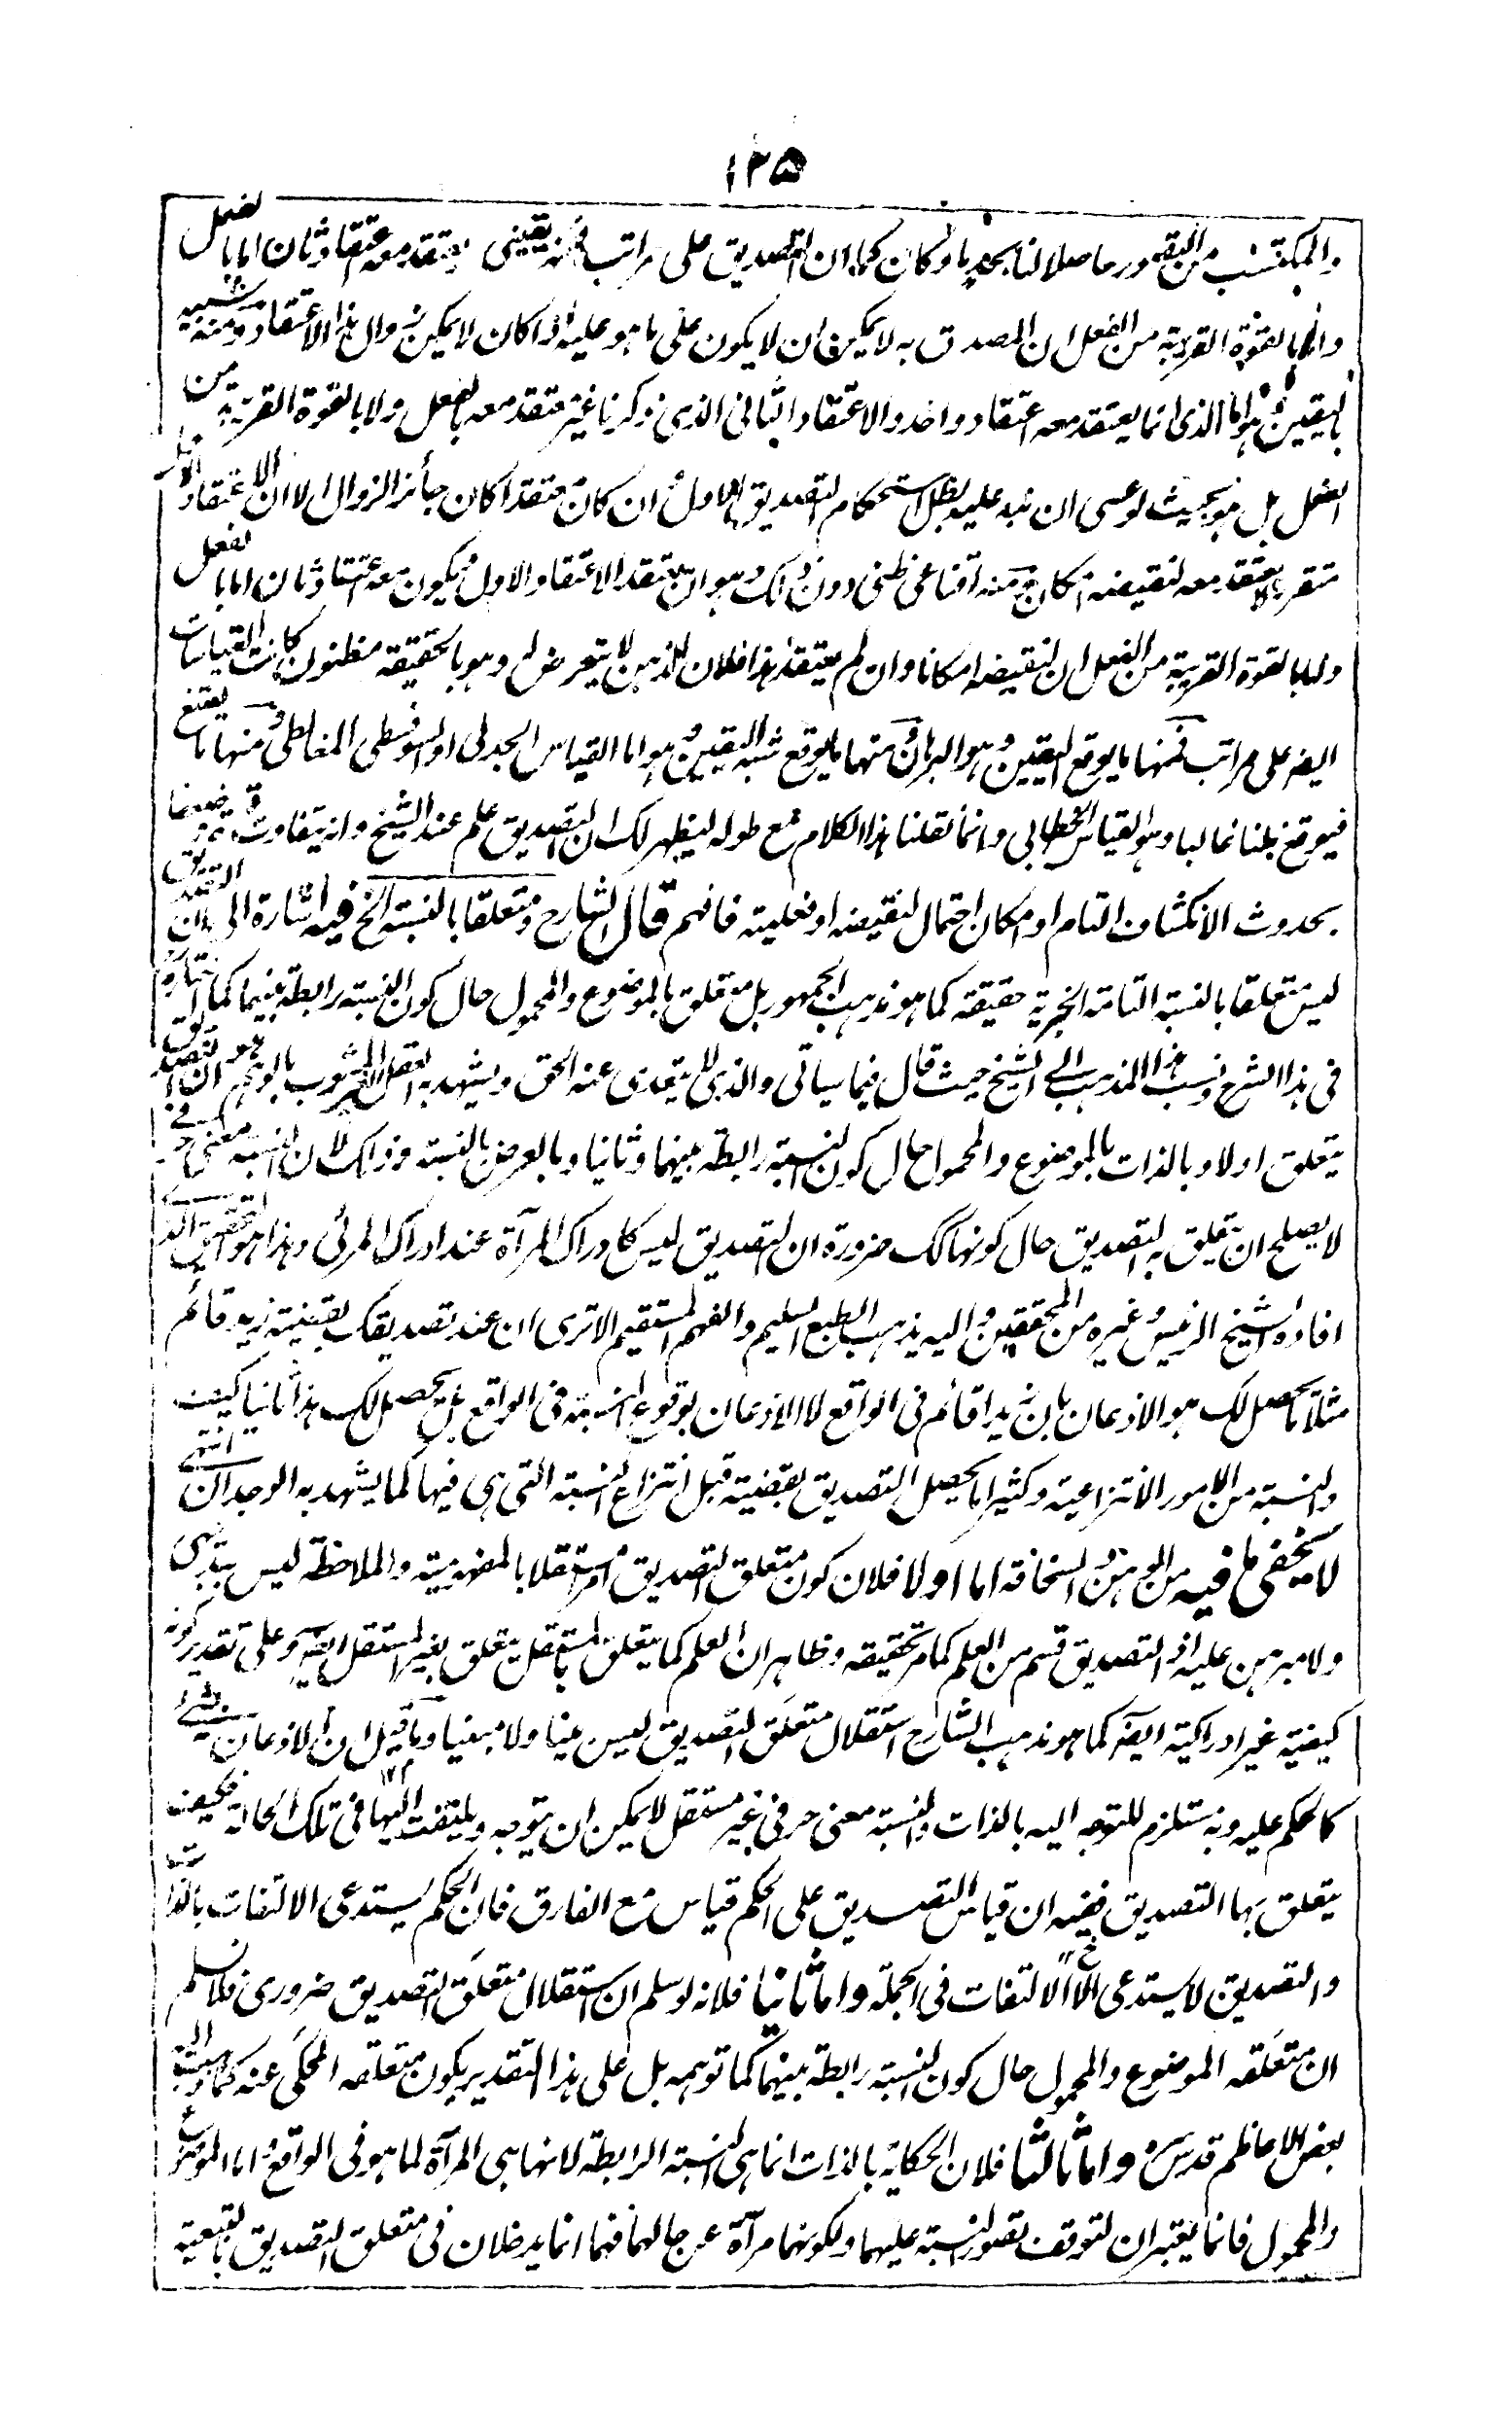 ١٢٥
والمكتسب من التصور حاصلا لنا بحد ما وكان كما ان التصديق على مراتب فمنه يقينى يعتقد معه اعتقاد ثان اما بالفعل
واما بالقوة القريبة من الفعل ان المصدق به لا يمكن ان لا يكون على ما هو عليه اذا كان لا يمكن زوال هذا الاعتقاد ومنه شبيه
باليقين وهو اما الذى انما يعتقد معه اعتقاد واحد والاعتقاد الثانى الذى ذكرنا غير معتقد معه بالفعل ولا بالقوة القريبة من
الفعل بل هو بحيث لو عسى ان نبه عليه بطل استحكام التصديق الاول او ان كان معتقدا كان جائز الزوال الا ان الاعتقاد الاول
متقرر لا يعتقد معه لنقيضه امكان ومنه اقناعى ظنى دون ذلك وهو ان يعتقد الاعتقاد الاول ويكون معه اعتقاد ثان اما بالفعل
واما بالقوة القريبة من الفعل ان لنقيضه امكانا وان لم يعتقد هذا فلان الذهن لا يتعرض له وهو بالحقيقة مظنون كانت القياسات
ايضا على مراتب فمنها ما يوقع اليقين وهو البرهان ومنها ما يوقع شبه اليقين وهو اما القياس الجدلى او السوفسطى المغالطى ومنها ما يقنع
فيوقع ظنا غالبا وهو القياس الخطابى وانما نقلنا هذا الكلام مع طوله ليظهر لك ان التصديق علم عند الشيخ وانه يتفاوت قوة وضعفا
بحدوث الانكشاف التام او امكان احتمال لنقيضه او فعليته فافهم قال الشارح ومتعلقا بالنسبة الخ فيه اشارة الى ان التصديق
ليس متعلقا بالنسبة التامة الخبرية حقيقة كما هو مذهب الجمهور بل متعلق بالموضوع والمحمول حال كون النسبة رابطة بينهما كما اختاره
فى هذا الشرح ونسب هذا المذهب الى الشيخ حيث قال فيما سياتى والذى لا يتعدى عنه الحق ويشهد به العقل الغير المشوب بالوهم هو ان التصديق
يتعلق اولا وبالذات بالموضوع والمحمول حال كون النسبة رابطة بينهما وثانيا وبالعرض بالنسبة وذلك لان النسبة معنى حرفى
لا يصلح ان يتعلق به التصديق حال كونها كك ضرورة ان التصديق ليس كادراك المرآة عند ادراك المرئى وهذا هو التحقيق الذى
افاده الشيخ الرئيس وغيره من المحققين واليه يذهب الطبع السليم والفهم المستقيم الا ترى ان عند تصديقك بقضية زيد قائم
مثلا ما يحصل لك هو الاذعان بان زيدا قائم فى الواقع لا الاذعان بوقوع النسبة فى الواقع بل يحصل لك هذا ثانيا كيف
والنسبة من الامور الانتزاعية وكثيرا ما يحصل التصديق بقضية قبل انتزاع النسبة التى هى فيها كما يشهد به الوجدان انتهى
لا يخفى ما فيه من الوهن والسخافة اما اولا فلان كون متعلق التصديق امرا مستقلا بالمفهومية والملاحظة ليس ببديهى
ولا مبرهن عليه اذ التصديق قسم من العلم كما مر تحقيقه وظاهر ان العلم كما يتعلق بالمستقل يتعلق بغير المستقل ايضا وعلى تقدير كونه
كيفية غير ادراكية ايضا كما هو مذهب الشارح استقلال متعلق التصديق ليس بينا ولا مبينا وما قيل ان الاذعان بشئ
كالحكم عليه وبه مستلزم للتوجه اليه بالذات والنسبة معنى حرفى غير مستقل لا يمكن ان يتوجه ويلتفت اليها فى تلك الحالة فكيف
يتعلق بها التصديق ففيه ان قياس التصديق على الحكم قياس مع الفارق فان الحكم يستدعى الالتفات بالذات
والتصديق لا يستدعى الا الالتفات فى الجملة واما ثانيا فلانه لو سلم ان استقلال متعلق التصديق ضرورى فلا نسلم
ان متعلقه الموضوع والمحمول حال كون النسبة رابطة بينهما كما توهمه بل على هذا التقدير يكون متعلقه المحكى عنه كما ذهب اليه
بعض الاعاظم قدس سره واما ثالثا فلان الحكاية بالذات انما هى النسبة الرابطة لانها هى المرآة لما هو فى الواقع واما الموضوع
والمحمول فانما يعتبران لتوقف تصور النسبة عليهما ولكونهما مرآة عن حالهما فهما انما يدخلان فى متعلق التصديق بالتبعية